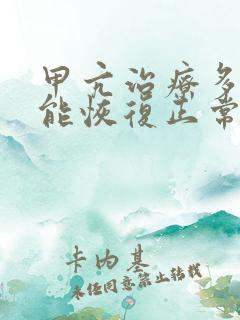 甲亢治療多
能恢復正常
卡内基
未经同意禁止转载